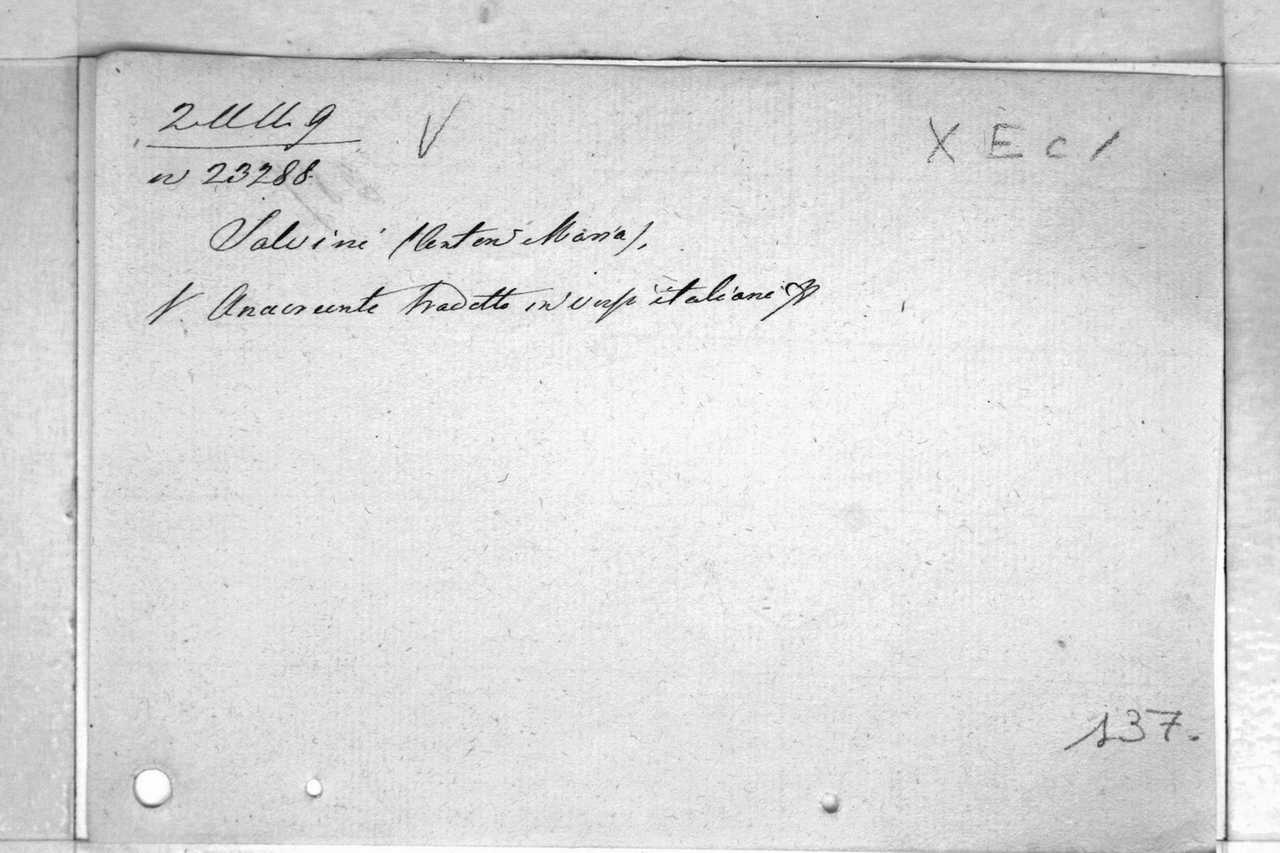 2.11.11.9 V X E c /
n 23288
Salvini (Anton Maria),
V. Anacreonte tradotto in versi italiani
137.